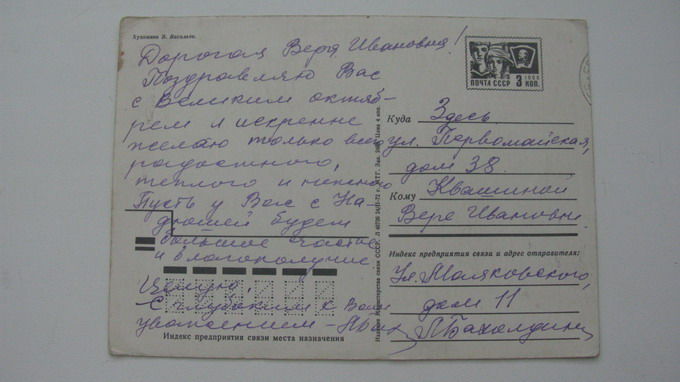 Художник В. Васильев.
Дорогая Вера Ивановна!
Поздравляю Вас
с Великим октяб-
рем и искренне
желаю только всего
радостного,
теплого и нежного
Пусть у Вас с На-
дюшей будет
большое счастье
и благополучие.
Целую,
С глубоким к Вам
уважением –
Индекс предприятия связи места назначения
ПОЧТА СССР
1966
3 КОП.
Куда Здесь
ул. Первомайская,
дом 38
Кому Квашиной
Вере Ивановне
Индекс предприятия связи и адрес отправителя:
ул. Маяковского,
дом 11